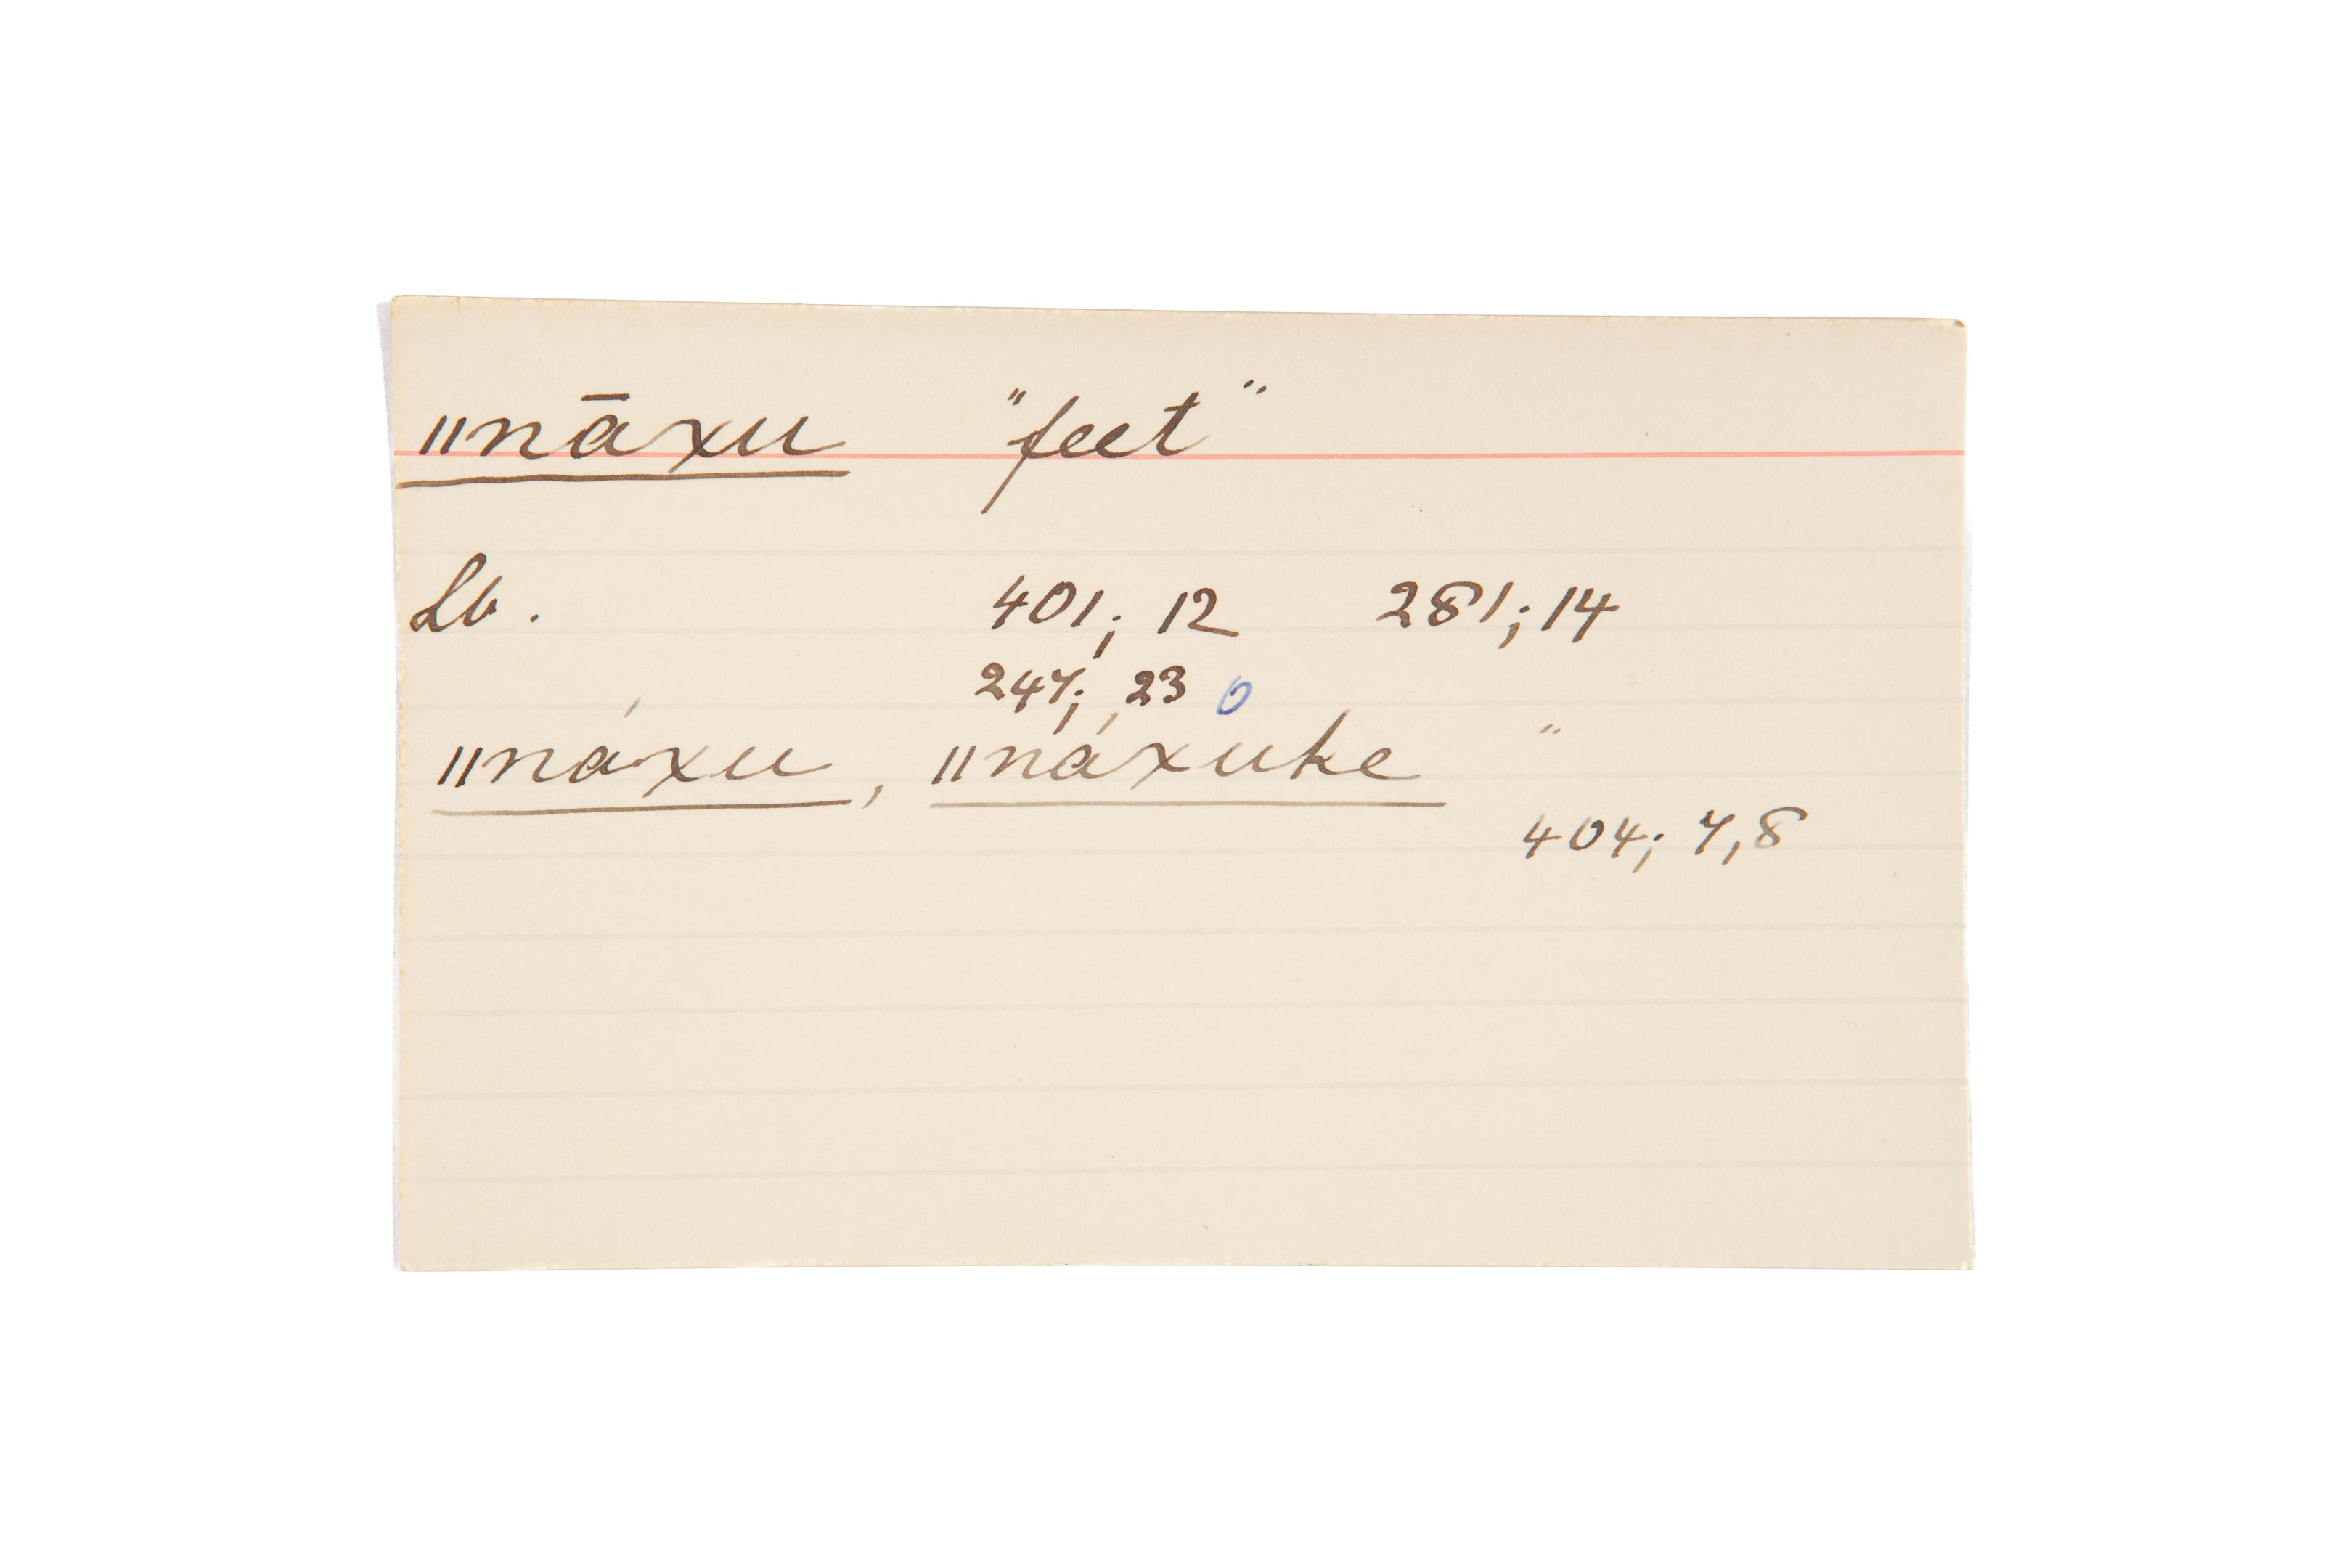 ǁnāxu "feet"
Lb. 401; 12 281; 14
247; 23 0
ǁnáxu, ǁnáxuke "
404; 7,8